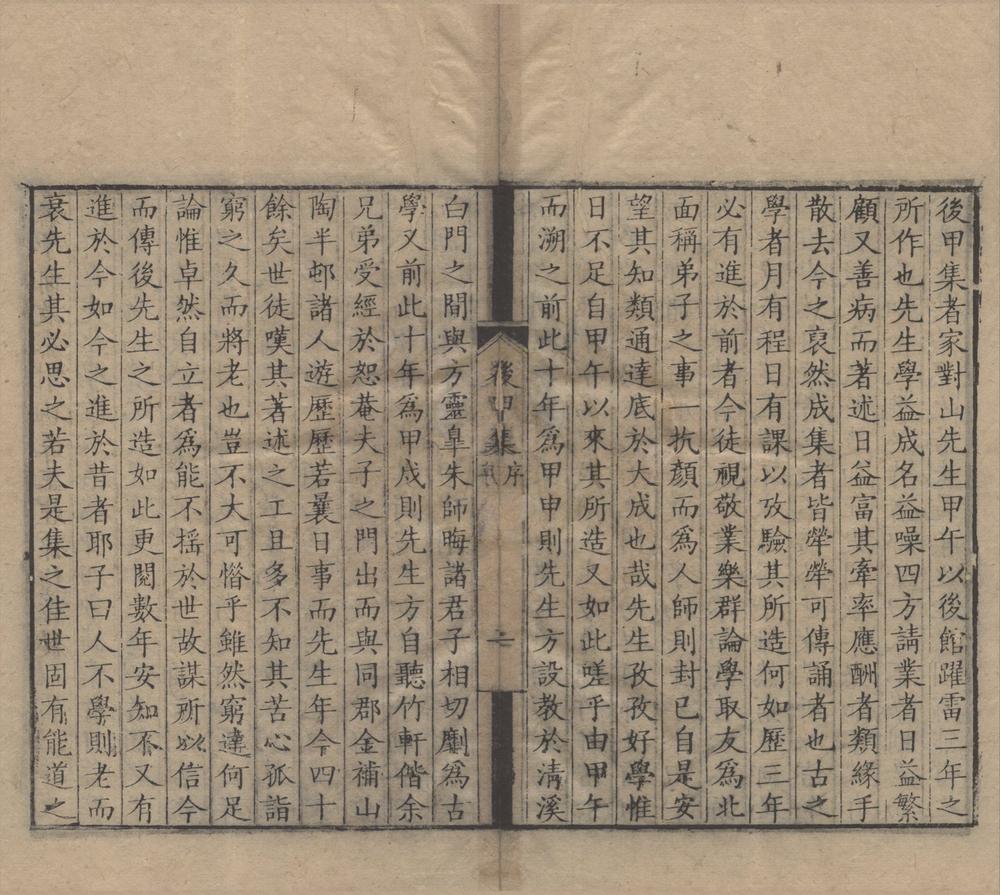 後甲集者家對山先生甲午以後館躍雷三年之
所作也先生學益成名益噪四方請業者日益繁
顧又善病而著述日益富其牽率應酬者類緣手
散去今之裒然成集者皆犖犖可傳誦者也古之
學者月有程日有課以攷驗其所造何如歷三年
必有進於前者今徒視敬業樂群論學取友為北
面稱弟子之事一抗顏而為人師則封已自是安
望其知類通達底於大成也哉先生孜孜好學惟
日不足自甲午以來其所造又如此嗟乎由甲午
而溯之前此十年為甲申則先生方設教於清溪
後甲集
序
二
白門之間與方靈皐朱師晦諸君子相切劘為古
學又前此十年為甲戌則先生方自聽竹軒偕余
兄弟受經於恕菴夫子之門出而與同郡金補山
陶半邨諸人遊歷歷若曩日事而先生年今四十
餘矣世徒嘆其著述之工且多不知其苦心孤詣
窮之久而將老也豈不大可惜乎雖然窮達何足
論惟卓然自立者為能不搖於世故謀所以信今
而傳後先生之所造如此更閱數年安知不又有
進於今如今之進於昔者耶子曰人不學則老而
衰先生其必思之若夫是集之佳世固有能道之